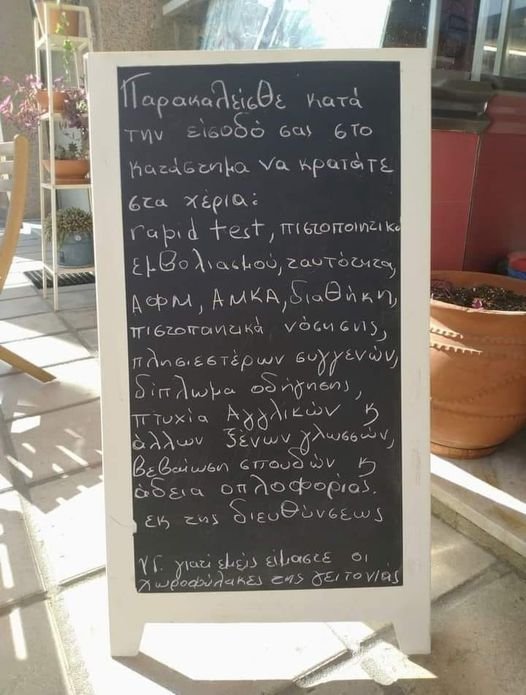 Παρακαλείσθε κατά
την είσοδό σας στο
κατάστημα να κρατάτε
στα χέρια:
rapid test, πιστοποιητικό
εμβολιασμού, ταυτότητα,
ΑΦΜ, ΑΜΚΑ, διαθήκη,
πιστοποιητικά νόσησης,
πλησιεστέρων συγγενών,
δίπλωμα οδήγησης,
πτυχία Αγγλικών ϗ
άλλων ξένων γλωσσών,
βεβαίωση σπουδών ϗ
άδεια οπλοφορίας.
εκ της διευθύνσεως
ΥΓ. γιατί εμείς είμαστε οι
χωροφύλακες της γειτονιάς